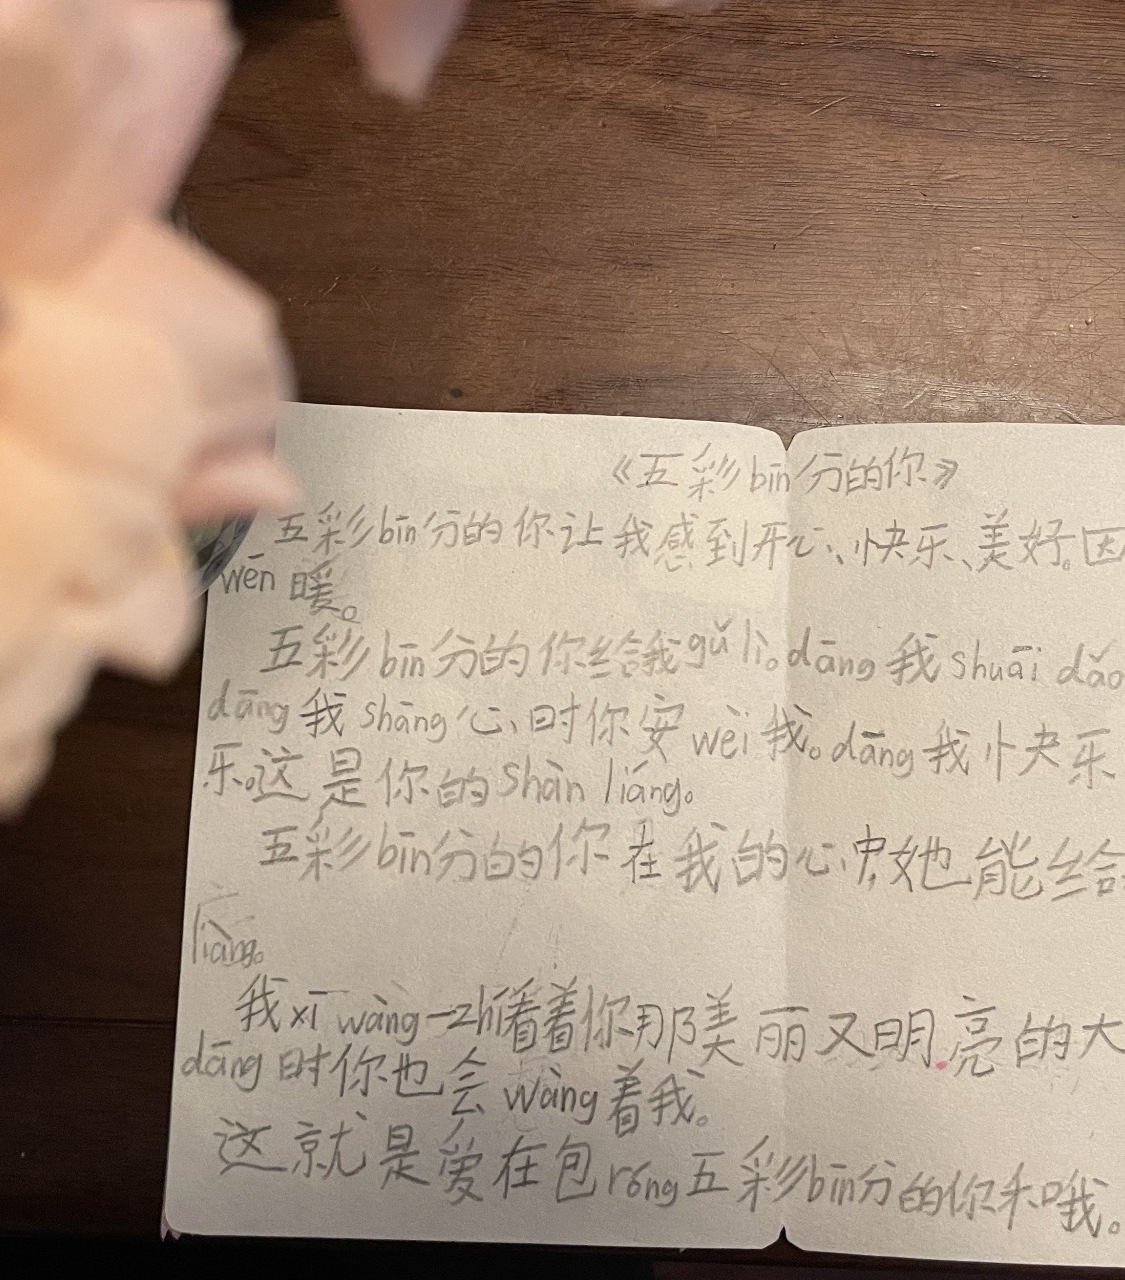 《五彩bīn分的你》
五彩bīn分的你让我感到开心、快乐、美好。因
wēn暖。
五彩bīn分的你给我gǔ lì。dāng我shuāi dǎo
dāng我shāng心、时你安wèi我。dāng我快乐
乐。这是你的Shàn liáng。
五彩bīn分的你在我的心中,她也能给
liàng。
我xī wàng一zhí看着你那美丽又明亮的大
dāng时你也会wàng着我。
这就是爱在包róng五彩bīn分的你和哦。